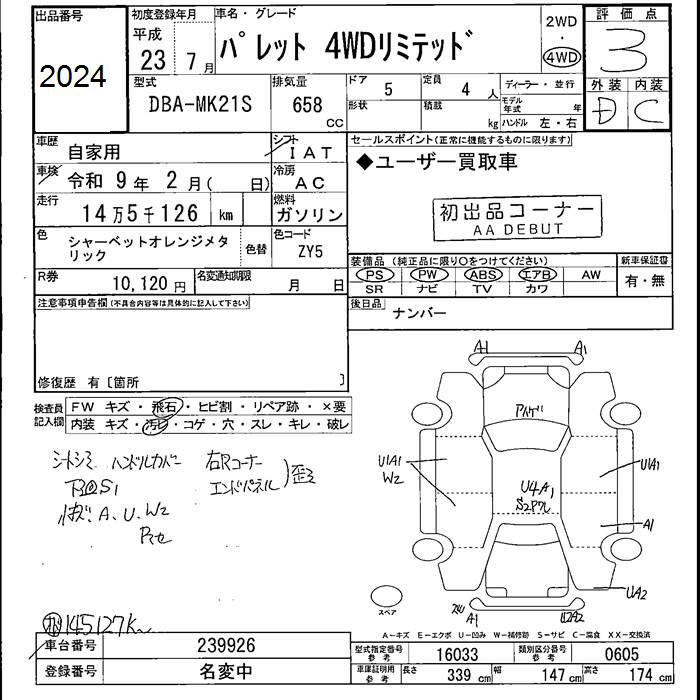 出品番号
2024
初度登録年月
平成
23 7月
車名・グレード
パレット 4WDリミテッド
2WD
・
4WD
評価点
3
外装 内装
D C
型式
DBA-MK21S
排気量
658
CC
ドア 5
定員 4 人
形状
積載 kg
ディーラー・並行
モデル年式 年
ハンドル 左・右
車歴
自家用
シフト
IAT
車検
令和 9年 2月( 日)
冷房
AC
走行
14万5千126 km
燃料
ガソリン
色
シャーベットオレンジメタリック
色替
色コード
ZY5
R券
10,120円
名変通知期限
月 日
セールスポイント(正常に機能するものに限ります)
◆ユーザー買取車
初出品コーナー
AA DEBUT
装備品 (純正品に限り○をつけてください)
新車保証書
PS PW ABS エアB AW
SR ナビ TV カワ
有・無
後日品
ナンバー
注意事項申告欄(不具合内容等は具体的に記入して下さい)
修復歴 有〔箇所 〕
検査員記入欄
FW キズ・飛石・ヒビ割・リペア跡・×要
内装 キズ・汚レ・コゲ・穴・スレ・キレ・破レ
シートシミ ハンドルカバー
右Rコーナー
エンドパネル 歪
下回S1
A、U、W2
A1 A1
U1A1
W2
U4A1
U1A1
A1
UA2
A1
スペア
145127K
A-キズ E-エクボ U-凹み W-補修跡 S-サビ C-腐食 XX-交換済
車台番号
239926
登録番号
名変中
型式指定番号
参考
16033
類別区分番号
参考
0605
車庫証明用
参考
長さ 339 cm
幅 147 cm
高さ 174 cm